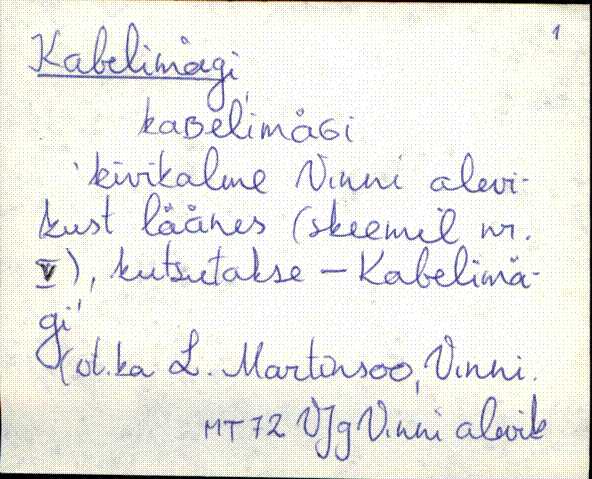 1
Kabelimägi
kaBelimäGi
'kivikalme Vinni alevi-
kust läänes (skeemil nr.
V), kutsutakse - Kabelimä-
gi'
(vt. ka L. Martinsoo, Vinni.
MT 72 VJg Vinni alevik